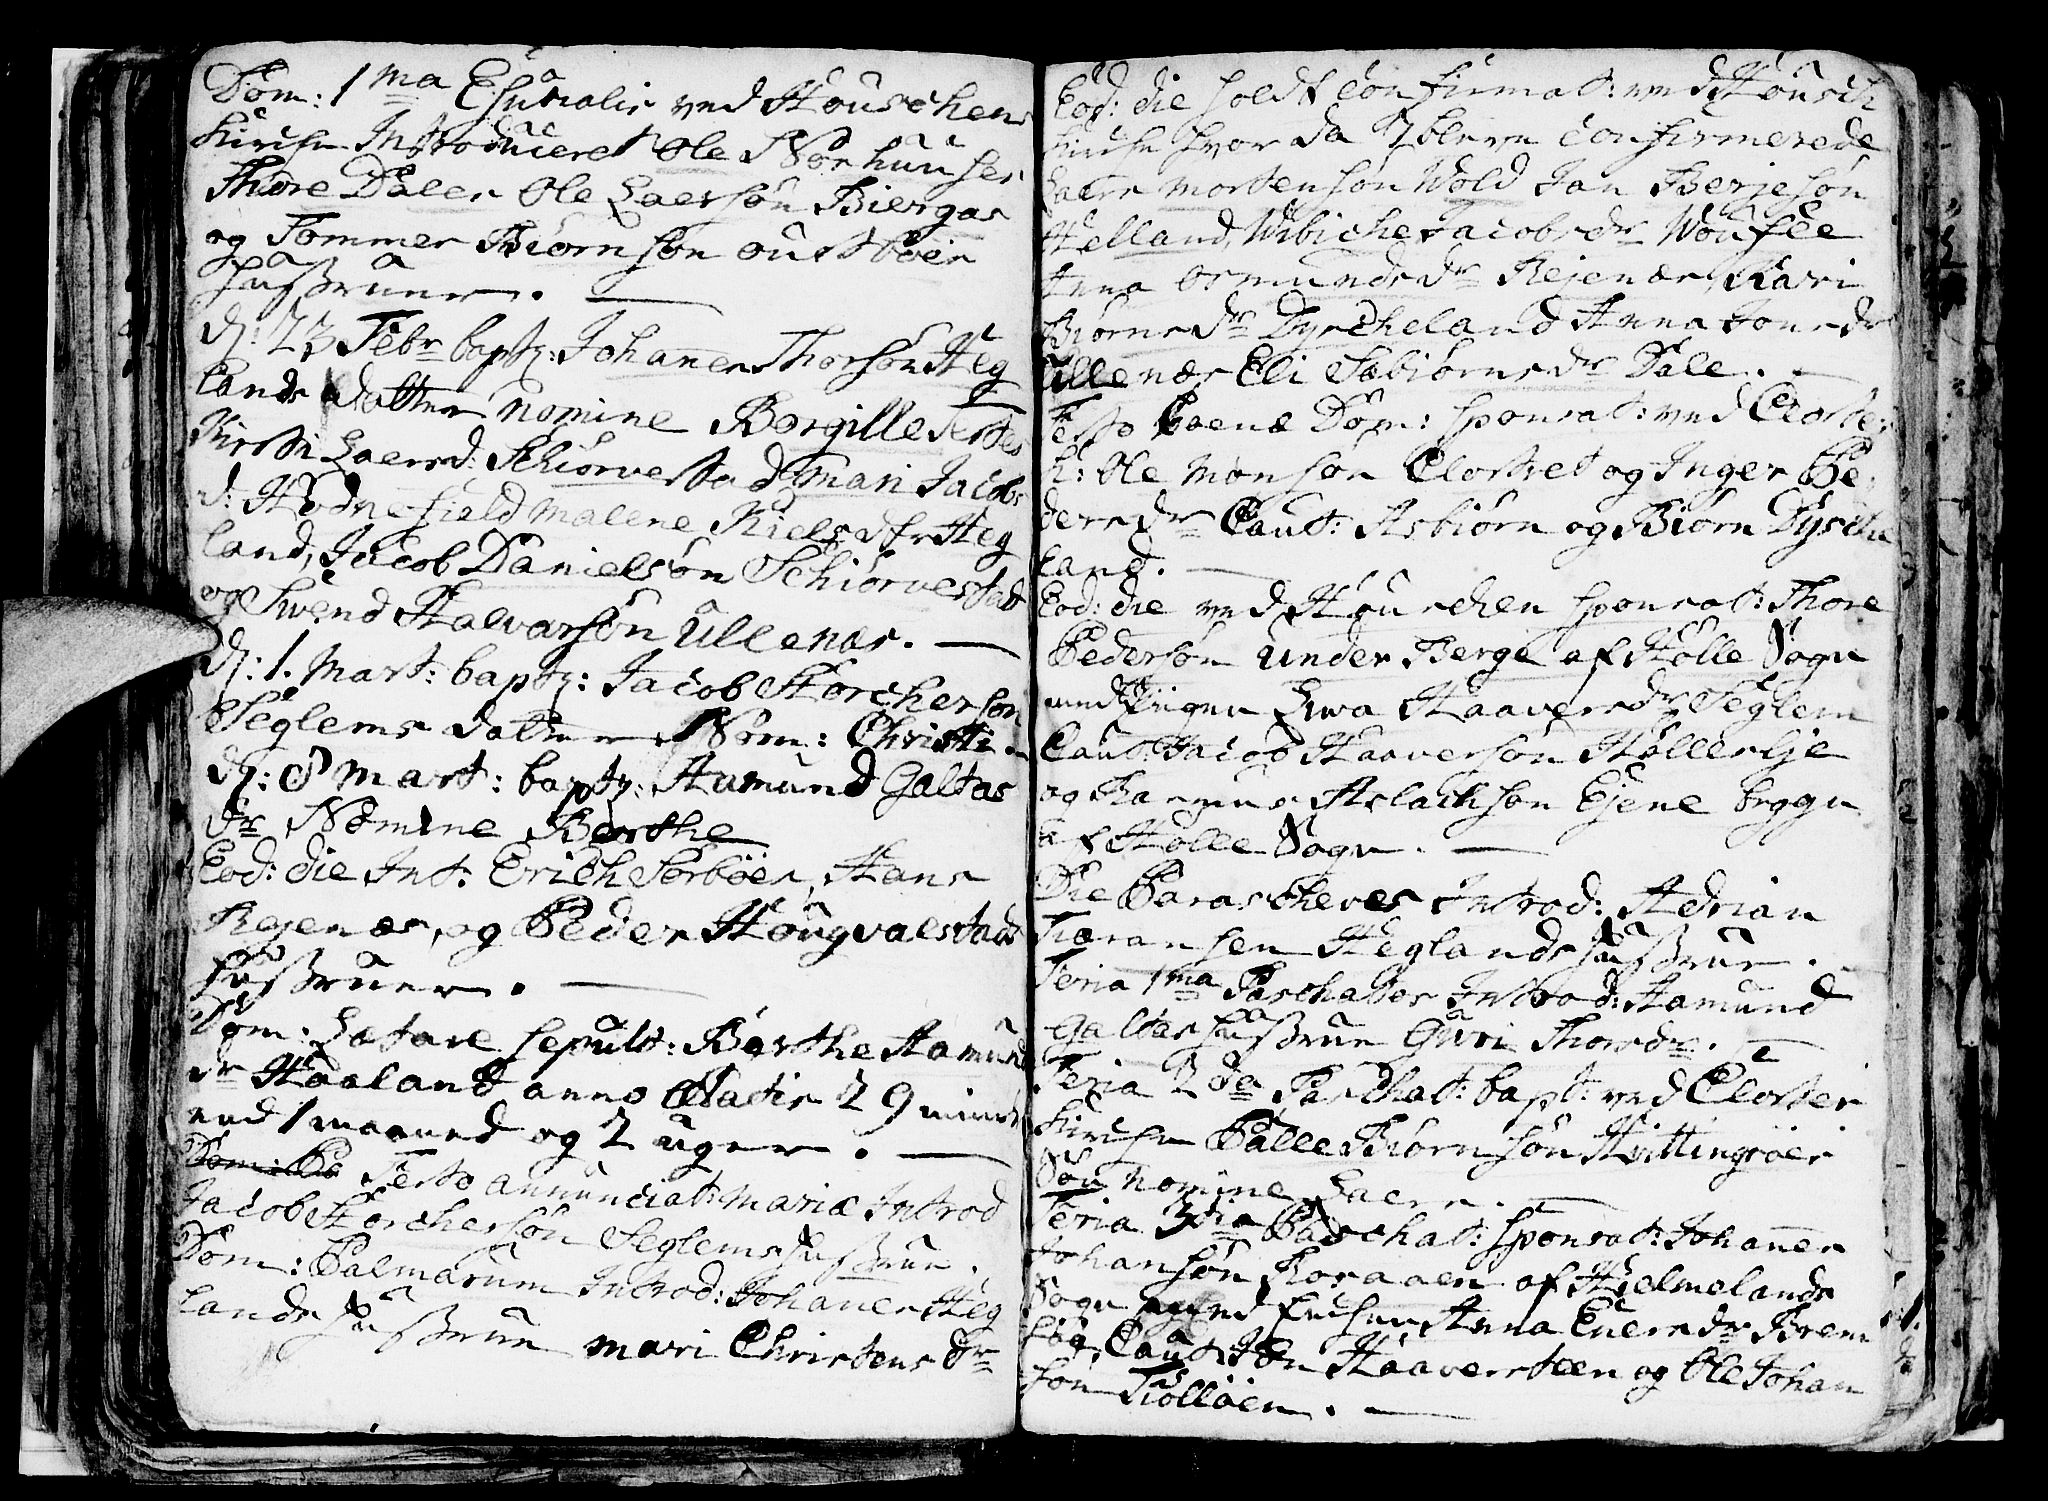 Dom: 1ma Esuralis ved Houschens
Kirche Introducered Ole Nørhuuses
Thore Dales Ole Laersøn Biergas
og Tommes Biørnsøn oustbøis
husstruer.
d: 23 Febr baptz: Johannes Thorsøn Heg
lands datter nomine Borgille Testes
Kirsti Laersd: Schiørvestad Mari Jacobs
d: Hodnefield Malene Niels dr Heg
land, Jacob Danielsøn Schiørvestad
og Svend Halvarsøn Ullenæs.
d: 1. Mart: baptz: Jacob Storchersøn
Seglems datter Nom: Christi
d: 8 Mart: baptz: Aamund Galtas
dr Nomine Berthe
Eod: die Int: Erich Sørbøes, Hans
Rejenæs, og Peder Hougvaldstads
husstruer.
Dom: Letare sepult: Berthe Aamunds
dr Haaland anno ætatis 29 mind
end 1 maaned og 2 uger.
Dom: Pa Festo annunciat: Mariæ Introd
Jacob Storchersøn Seglems husstrue.
Dom: Palmarum Introd: Johanes Heg
lands husstrue Mari Christens dr
Eod: die holdt confirmat: ved Housch
Kirche hvor da 7 bleve confirmerede
Laers Mortensøn Wold Jan Berjesøn
Helland, Wibiche Jacobs dr Woufle
Anna Osmunds dr Rejenæs, Kari
Biørns dr Dyscheland Anna Jons dr
Ullenæs Eli Sebiørns dr Dale.
Festo Coenæ Dom: sponsat: ved Closter
k: Ole Monsøn Clostret og Inger Pe
ders dr Caut: Asbiørn og Biørn Dysche
land.
Eod: die ved Houschen sponsat: Thore
Pedersøn Under Berge af Holle Sogn
med Pigen Ewa Haavers dr Seglem
Caut: Jacob Haaversøn Holleslje
og Rasmus Aslachsøn Ejene bygge
af Holle Sogn.
Die Parascheves Introd: Adrian
Taransen Heglands husstrue.
Feria 1ma Paschatos Introd: Aamund
Galtas husstrue Guri Thors dr.
Feria 2da Paschat: bapt: ved Closter
Kirchen Palle Biørnsøn Hvittingsøes
Søn nomine Laers.
Feria 3tia Paschat: sponsat: Johannes
Johansøn Roraaen af Hielmelands
Sogn med Enchen Anna Euers dr Brem
høg Caut: Jon Haaversteen og Ole Johan
søn Tiolløen.